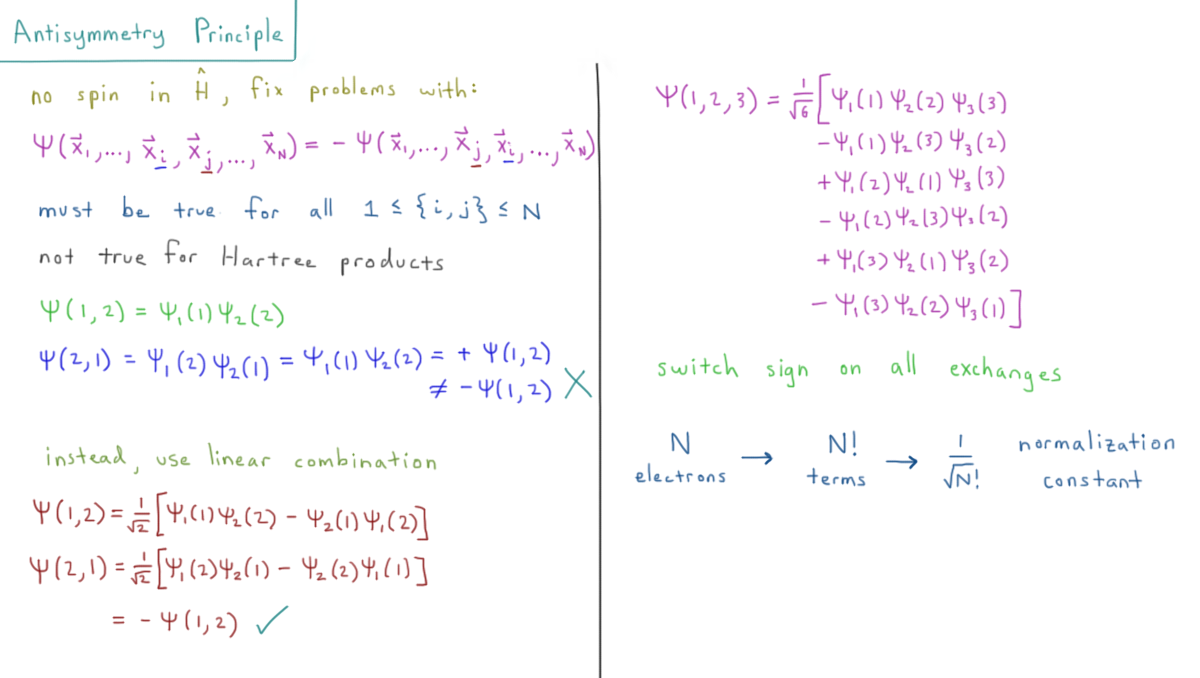 Antisymmetry Principle
no spin in Ĥ, fix problems with:
Ψ(x⃗₁,..., x⃗ᵢ, x⃗ⱼ,..., x⃗_N) = - Ψ(x⃗₁,..., x⃗ⱼ, x⃗ᵢ, ..., x⃗_N)
must be true for all 1 ≤ {i,j} ≤ N
not true for Hartree products
Ψ(1,2) = Ψ₁(1)Ψ₂(2)
Ψ(2,1) = Ψ₁(2)Ψ₂(1) = Ψ₁(1)Ψ₂(2) = + Ψ(1,2)
≠ -Ψ(1,2) X
instead, use linear combination
Ψ(1,2) = 1/√2 [Ψ₁(1)Ψ₂(2) - Ψ₂(1)Ψ₁(2)]
Ψ(2,1) = 1/√2 [Ψ₁(2)Ψ₂(1) - Ψ₂(2)Ψ₁(1)]
= - Ψ(1,2) ✓
Ψ(1,2,3) = 1/√6 [Ψ₁(1)Ψ₂(2)Ψ₃(3)
-Ψ₁(1)Ψ₂(3)Ψ₃(2)
+Ψ₁(2)Ψ₂(1)Ψ₃(3)
-Ψ₁(2)Ψ₂(3)Ψ₃(2)
+Ψ₁(3)Ψ₂(1)Ψ₃(2)
-Ψ₁(3)Ψ₂(2)Ψ₃(1)]
switch sign on all exchanges
N electrons → N! terms → 1/√N! normalization constant